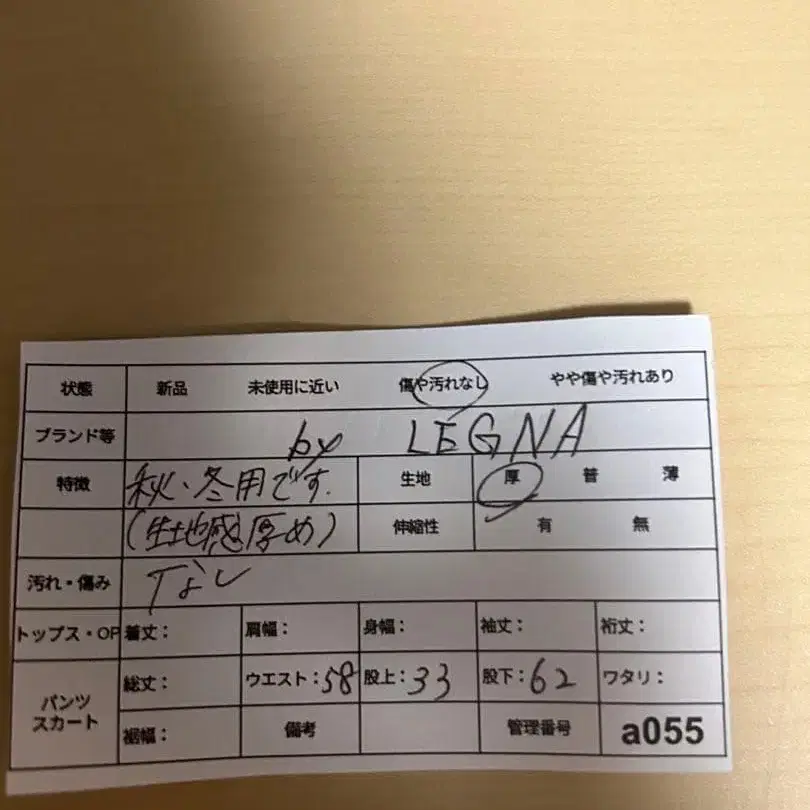 状態 新品 未使用に近い 傷や汚れなし やや傷や汚れあり
ブランド等 by LEGNA
特徴 秋、冬用です. 生地 厚 普 薄
(生地感厚め) 伸縮性 有 無
汚れ・傷み なし
トップス・OP 着丈： 肩幅： 身幅： 袖丈： 裄丈：
パンツ スカート 総丈： ウエスト：58 股上：33 股下：62 ワタリ：
裾幅： 備考 管理番号 a055